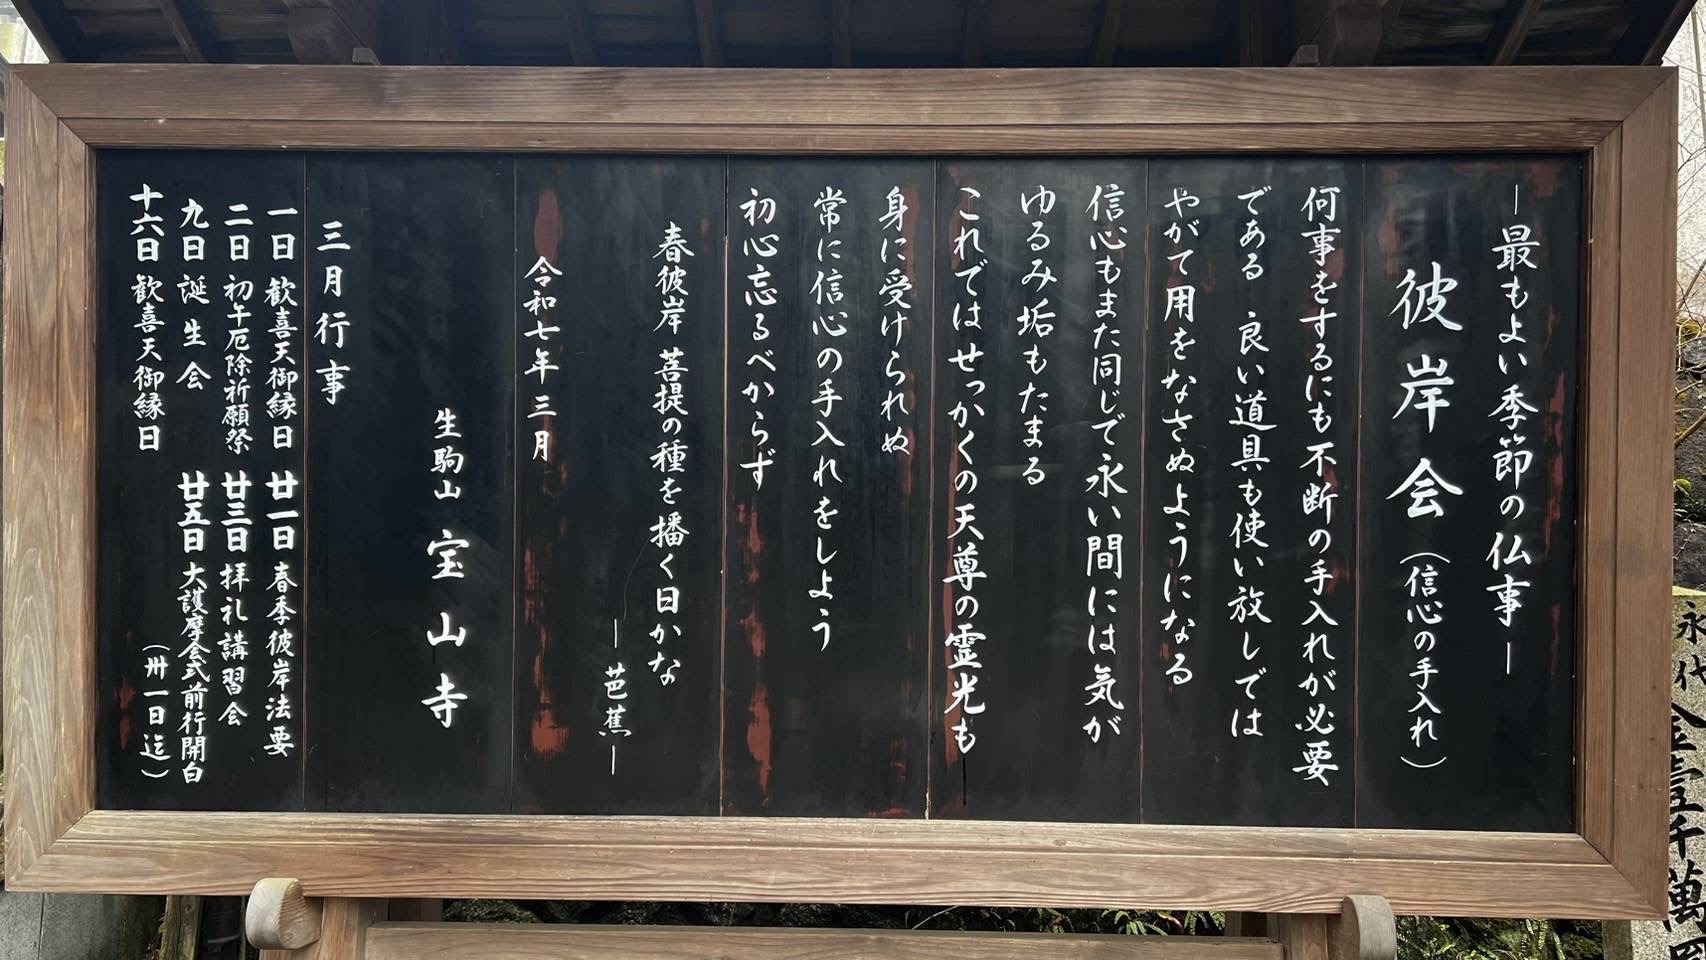 ―最もよい季節の仏事―
彼岸会(信心の手入れ)
何事をするにも不断の手入れが必要
である 良い道具も使い放しでは
やがて用をなさぬようになる
信心もまた同じで永い間には気が
ゆるみ垢もたまる
これではせっかくの天尊の霊光も
身に受けられぬ
常に信心の手入れをしよう
初心忘るべからず
春彼岸 菩提の種を播く日かな
―芭蕉―
令和七年三月
生駒山 宝山寺
三月行事
一日 歓喜天御縁日
二日 初午厄除祈願祭
九日 誕生会
十六日 歓喜天御縁日
廿一日 春季彼岸法要
廿三日 拝礼講習会
廿五日 大護摩会式前行開白
(卅一日迄)
永代
金壹千萬